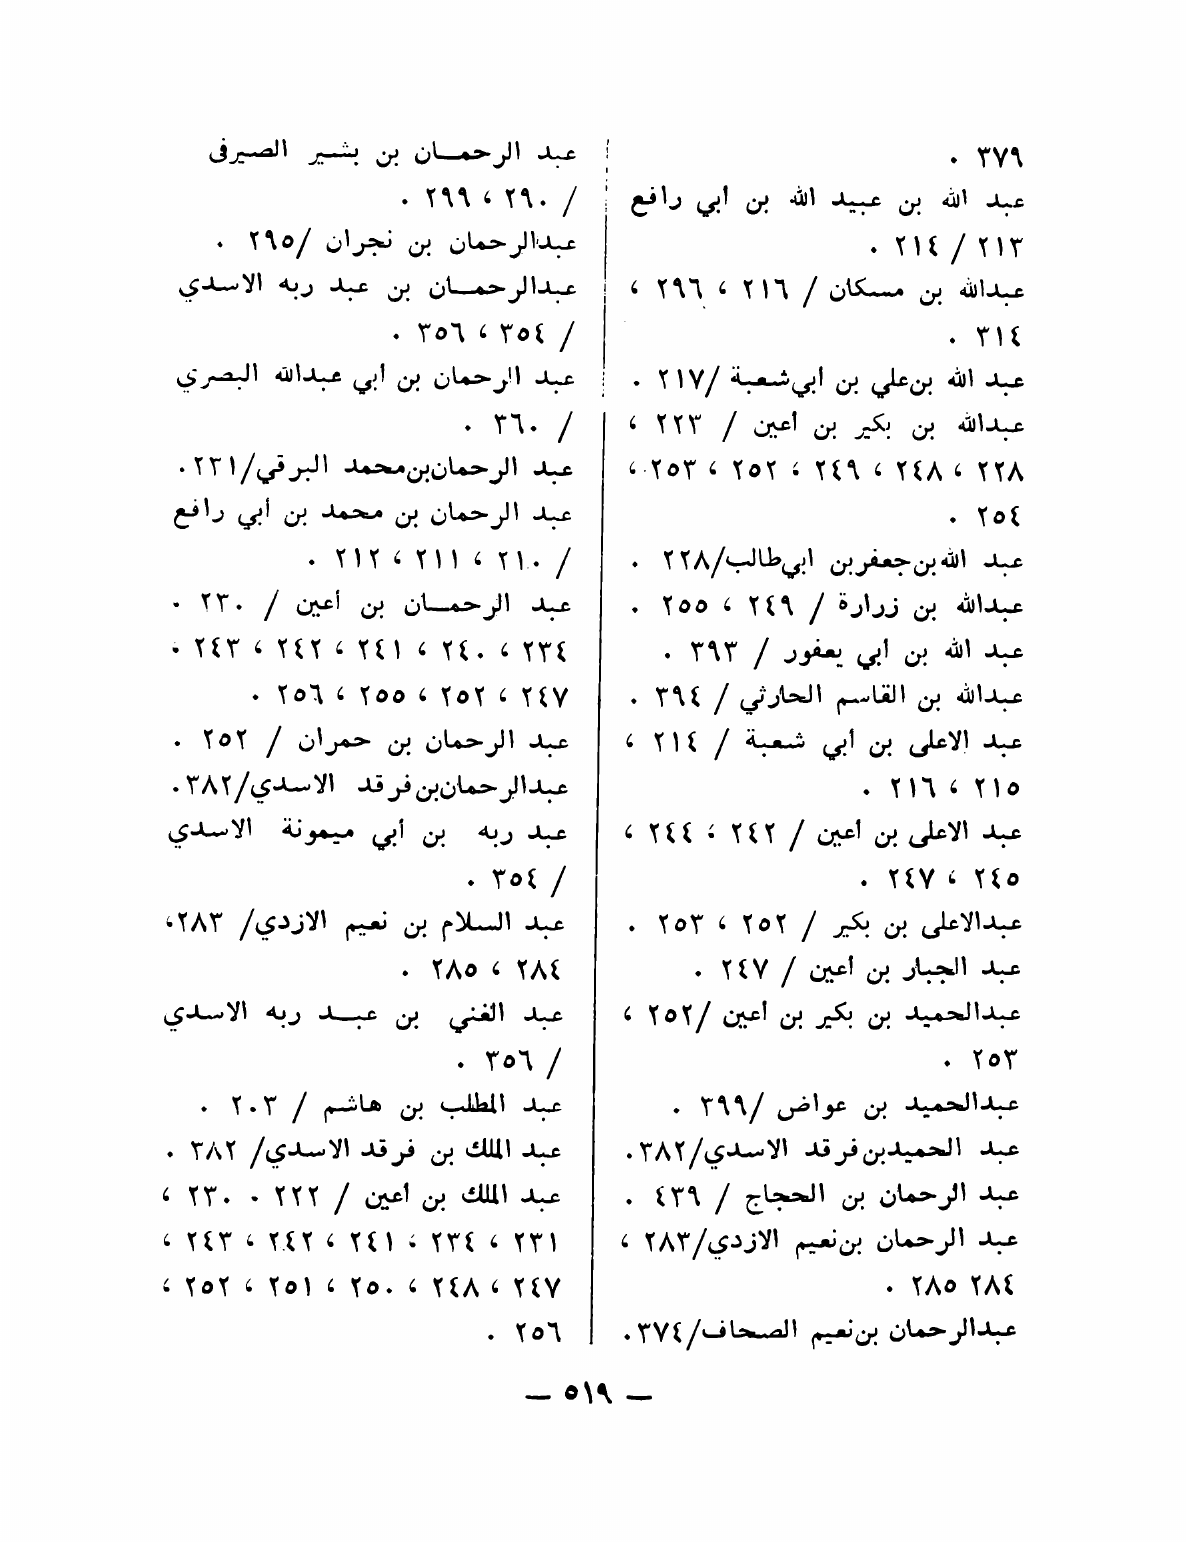 ٣٧٩ .
عبد الله بن عبيد الله بن أبي رافع
٢١٣ / ٢١٤ .
عبدالله بن مسكان / ٢١٦ ، ٢٩٦ ،
٣١٤ .
عبد الله بن علي بن أبي شعبة /٢١٧ .
عبدالله بن بكير بن أعين / ٢٢٣ ،
٢٢٨ ، ٢٤٨ ، ٢٤٩ ، ٢٥٢ ، ٢٥٣ ،
٢٥٤ .
عبد الله بن جعفر بن ابي طالب/٢٢٨ .
عبدالله بن زرارة / ٢٤٩ ، ٢٥٥ .
عبد الله بن أبي يعفور / ٣٩٣ .
عبدالله بن القاسم الحارثي / ٣٩٤ .
عبد الاعلى بن أبي شعبة / ٢١٤ ،
٢١٥ ، ٢١٦ .
عبد الاعلى بن أعين / ٢٤٢ ، ٢٤٤ ،
٢٤٥ ، ٢٤٧ .
عبدالاعلى بن بكير / ٢٥٢ ، ٢٥٣ .
عبد الجبار بن أعين / ٢٤٧ .
عبدالحميد بن بكير بن أعين /٢٥٢ ،
٢٥٣ .
عبدالحميد بن عواض /٣٩٩ .
عبد الحميد بن فرقد الاسدي/٣٨٢ .
عبد الرحمان بن الحجاج / ٤٣٩ .
عبد الرحمان بن نعيم الازدي/٢٨٣ ،
٢٨٤ ٢٨٥ .
عبدالرحمان بن نعيم الصحاف/٣٧٤ .
عبد الرحمان بن بشير الصيرفى
/ ٢٩٠ ، ٢٩٩ .
عبدالرحمان بن نجران /٢٩٥ .
عبدالرحمان بن عبد ربه الاسدي
/ ٣٥٤ ، ٣٥٦ .
عبد الرحمان بن أبي عبدالله البصري
/ ٣٦٠ .
عبد الرحمان بن محمد البرقي/٢٣١ .
عبد الرحمان بن محمد بن أبي رافع
/ ٢١٠ ، ٢١١ ، ٢١٢ .
عبد الرحمان بن أعين / ٢٣٠ .
٢٣٤ ، ٢٤٠ ، ٢٤١ ، ٢٤٢ ، ٢٤٣ .
٢٤٧ ، ٢٥٢ ، ٢٥٥ ، ٢٥٦ .
عبد الرحمان بن حمران / ٢٥٢ .
عبدالرحمان بن فرقد الاسدي/٣٨٢ .
عبد ربه بن أبي ميمونة الاسدي
/ ٣٥٤ .
عبد السلام بن نعيم الازدي/ ٢٨٣،
٢٨٤ ، ٢٨٥ .
عبد الغني بن عبد ربه الاسدي
/ ٣٥٦ .
عبد المطلب بن هاشم / ٢٠٣ .
عبد الملك بن فرقد الاسدي/ ٣٨٢ .
عبد الملك بن أعين / ٢٢٢ . ٢٣٠ ،
٢٣١ ، ٢٣٤ ، ٢٤١ ، ٢٤٢ ، ٢٤٣ ،
٢٤٧ ، ٢٤٨ ، ٢٥٠ ، ٢٥١ ، ٢٥٢ ،
٢٥٦ .
— ٥١٩ —